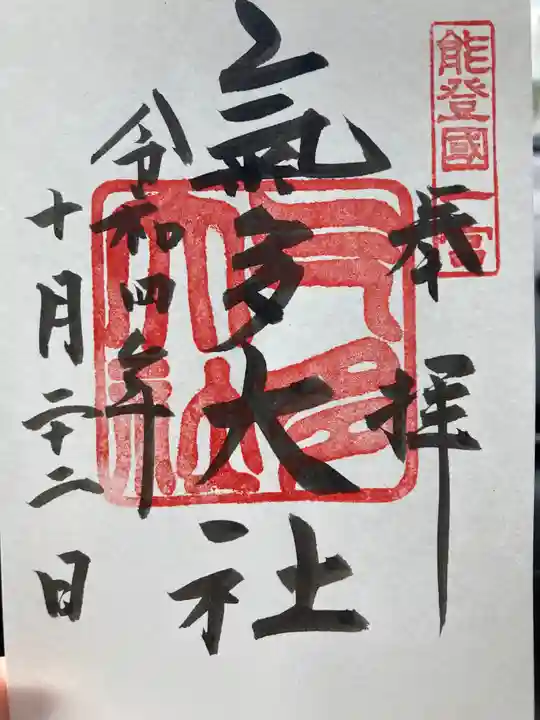 能登國一宮
奉拝
氣多大社
令和四年
十月二十二日
氣多大社